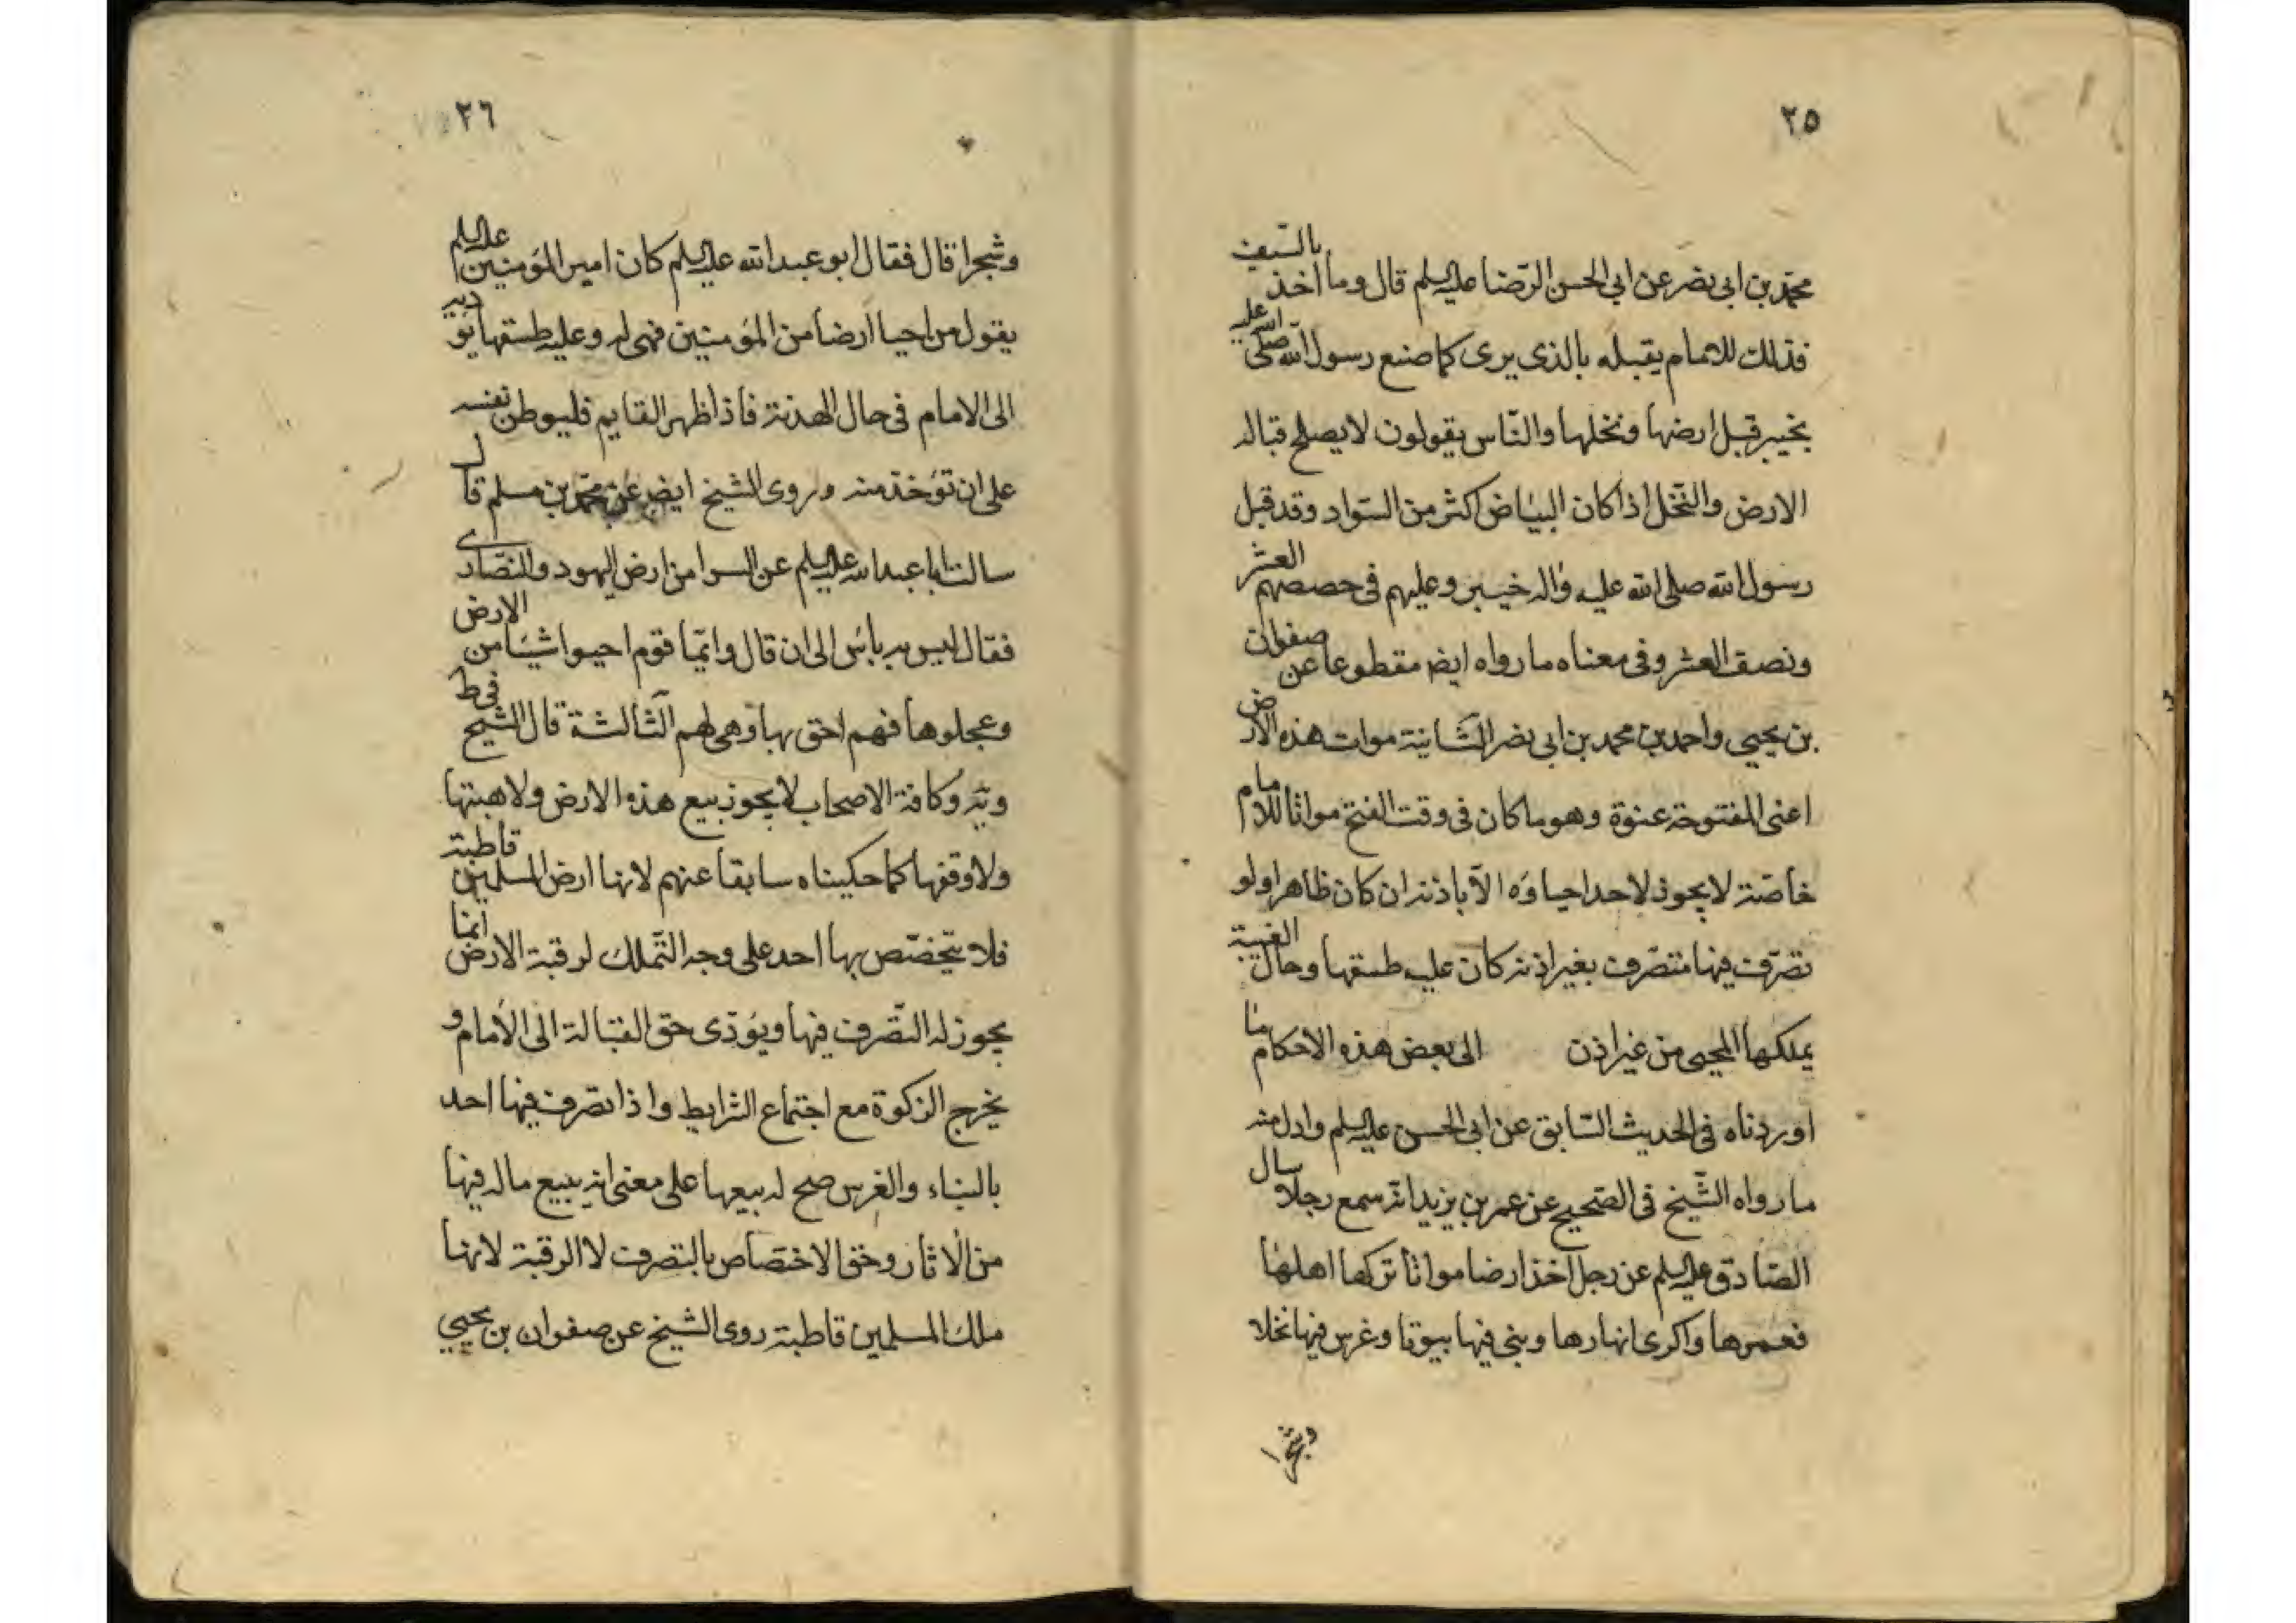 ٢٥
محمد بن ابى نصر عن ابى الحسن الرّضا عليه السلم قال وما اخذ بالسّيف
فذلك للامام يقبله بالذى يرى كما صنع رسول الله صلى الله عليه
بخيبر قبل ارضها ونخلها والنّاس يقولون لا يصلح قبالة
الارض والنّخل اذا كان البياض اكثر من السّواد وقد قبل
رسول الله صلى الله عليه واله خيبر وعليهم فى حصصهم العشر
ونصف العشر وفى معناه ما رواه ايض مقطوعا عن صفوان
بن يحيى واحمد بن محمد بن ابى نصر الثّانية موات هذه الارض
اعنى المفتوحة عنوة وهو ما كان فى وقت الفتح مواتا للامام
خاصّة لا يجوز لاحد احياؤه الّا باذنه ان كان ظاهرا ولو
تصرّف فيها متصّرف بغير اذنه كان عليه طسقها وحال الغيبة
يملكها المحيى من غير اذن الى بعض هذه الاحكام ما
اوردناه فى الحديث السّابق عن ابى الحسن عليه السلم وادل منه
ما رواه الشّيخ فى الصّحيح عن عمر بن يزيد انّه سمع رجلا سال
الصّادق عليه السلم عن رجل اخذ ارضا مواتا تركها اهلها
فعمرها واكرى انهارها وبنى فيها بيوتا وغرس فيها نخلا
وشجرا
٢٦
وشجرا قال فقال ابو عبد الله عليه السلم كان امير المؤمنين عليه السلم
يقول من احيا ارضا من المؤمنين فهى له وعليه طسقها يؤديه
الى الامام فى حال الهدنة فاذا ظهر القايم فليوطن نفسه
على ان تؤخذ منه وروى الشيخ ايض عن محمد بن مسلم قال
سالت ابا عبد الله عليه السلم عن السرا من ارض اليهود والنّصارى
فقال ليس به باس الى ان قال وايّما قوم احيوا شيئا من الارض
وعجلوها فهم احق بها وهى لهم الثّالثة قال الشيخ فى ط
ويه وكافة الاصحاب لا يجوز بيع هذه الارض ولا هبتها
ولا وقفها كما حكيناه سابقا عنهم لانها ارض المسلمين قاطبة
فلا يتخصّص بها احد على وجه التّملك لرقبة الارض انما
يجوز له التّصرف فيها ويؤدى حق القبالة الى الامام و
يخرج الزكوة مع اجتماع الشرايط واذا تصرف فيها احد
بالبناء والغرس صح له بيعها على معنى انه يبيع ماله فيها
من الاثار وحق الاختصاص بالتصرف لا الرقبة لانها
ملك المسلمين قاطبة روى الشيخ عن صفوان بن يحيى